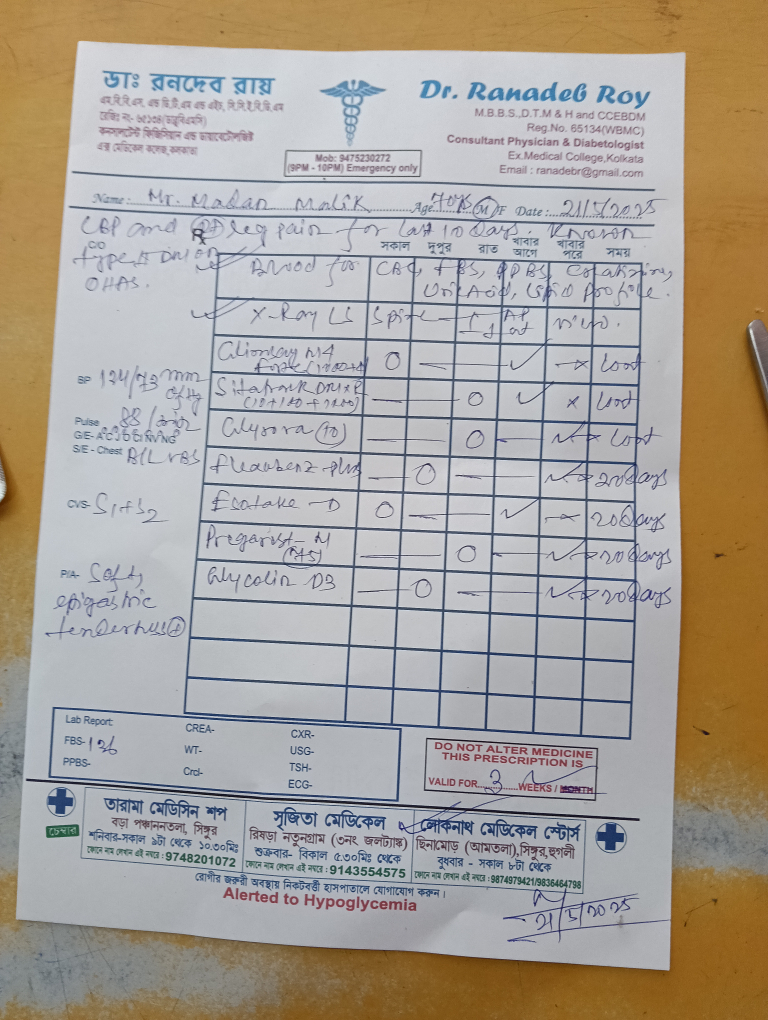 ডাঃ রনদেব রায়
এম.বি.বি.এস, এন্ড ডি.টি.এম এন্ড এইচ, সি.সি.ই.বি.ডি.এম
রেজিঃ নং- ৬৫১৩৪(ডব্লুবিএমসি)
কনসালটেন্ট ফিজিশিয়ান এন্ড ডায়াবেটোলজিষ্ট
এক্স মেডিকেল কলেজ, কলকাতা
Mob: 9475230272
(9PM - 10PM) Emergency only
Dr. Ranadeb Roy
M.B.B.S.,D.T.M & H and CCEBDM
Reg.No. 65134(WBMC)
Consultant Physician & Diabetologist
Ex.Medical College,Kolkata
Email : ranadebr@gmail.com
Name: Mr. Madan Malik Age 70 M/F Date: 21/5/2025
LBP and leg pain for last 10 days. Known
Type II DM on
OHAS.
C/O
Rx
সকাল দুপুর রাত খাবার আগে খাবার পরে সময়
Blood for CBC, FBS, PPBS, Creatinine,
Uric Acid, Lipid profile.
X-Ray LS Spine - AP view.
BP 124/73 mm of Hg
Pulse 88/min
G/E-
S/E - Chest B/L VBS
CVS- S1+S2
P/A- Soft,
epigastric
tenderness +
O — ✓ × cont
— O ✓ × cont
(10) — O — ✓ × cont
Plus — O — ✓ × 20 days
D O — ✓ × 20 days
M (75) — O — ✓ × 20 days
D3 — O — ✓ × 20 days
Lab Report:
FBS- 126
PPBS-
CREA-
WT-
Crcl-
CXR-
USG-
TSH-
ECG-
DO NOT ALTER MEDICINE
THIS PRESCRIPTION IS
VALID FOR 3 WEEKS / MONTH
চেম্বার
তারামা মেডিসিন শপ
বড়া পঞ্চাননতলা, সিঙ্গুর
শনিবার-সকাল ৯টা থেকে ১০.৩০মিঃ
ফোনে নাম লেখান এই নম্বরে : 9748201072
সৃজিতা মেডিকেল
রিষড়া নতুনগ্রাম (৩নং জলট্যাঙ্ক)
শুক্রবার- বিকাল ৫:৩০মিঃ থেকে
ফোনে নাম লেখান এই নম্বরে : 9143554575
লোকনাথ মেডিকেল স্টোর্স
ছিনামোড় (আমতলা),সিঙ্গুর,হুগলী
বুধবার - সকাল ৮টা থেকে
ফোনে নাম লেখান এই নম্বরে : 9874979421/9836464798
রোগীর জরুরী অবস্থায় নিকটবর্ত্তী হাসপাতালে যোগাযোগ করুন।
Alerted to Hypoglycemia
21/5/2025